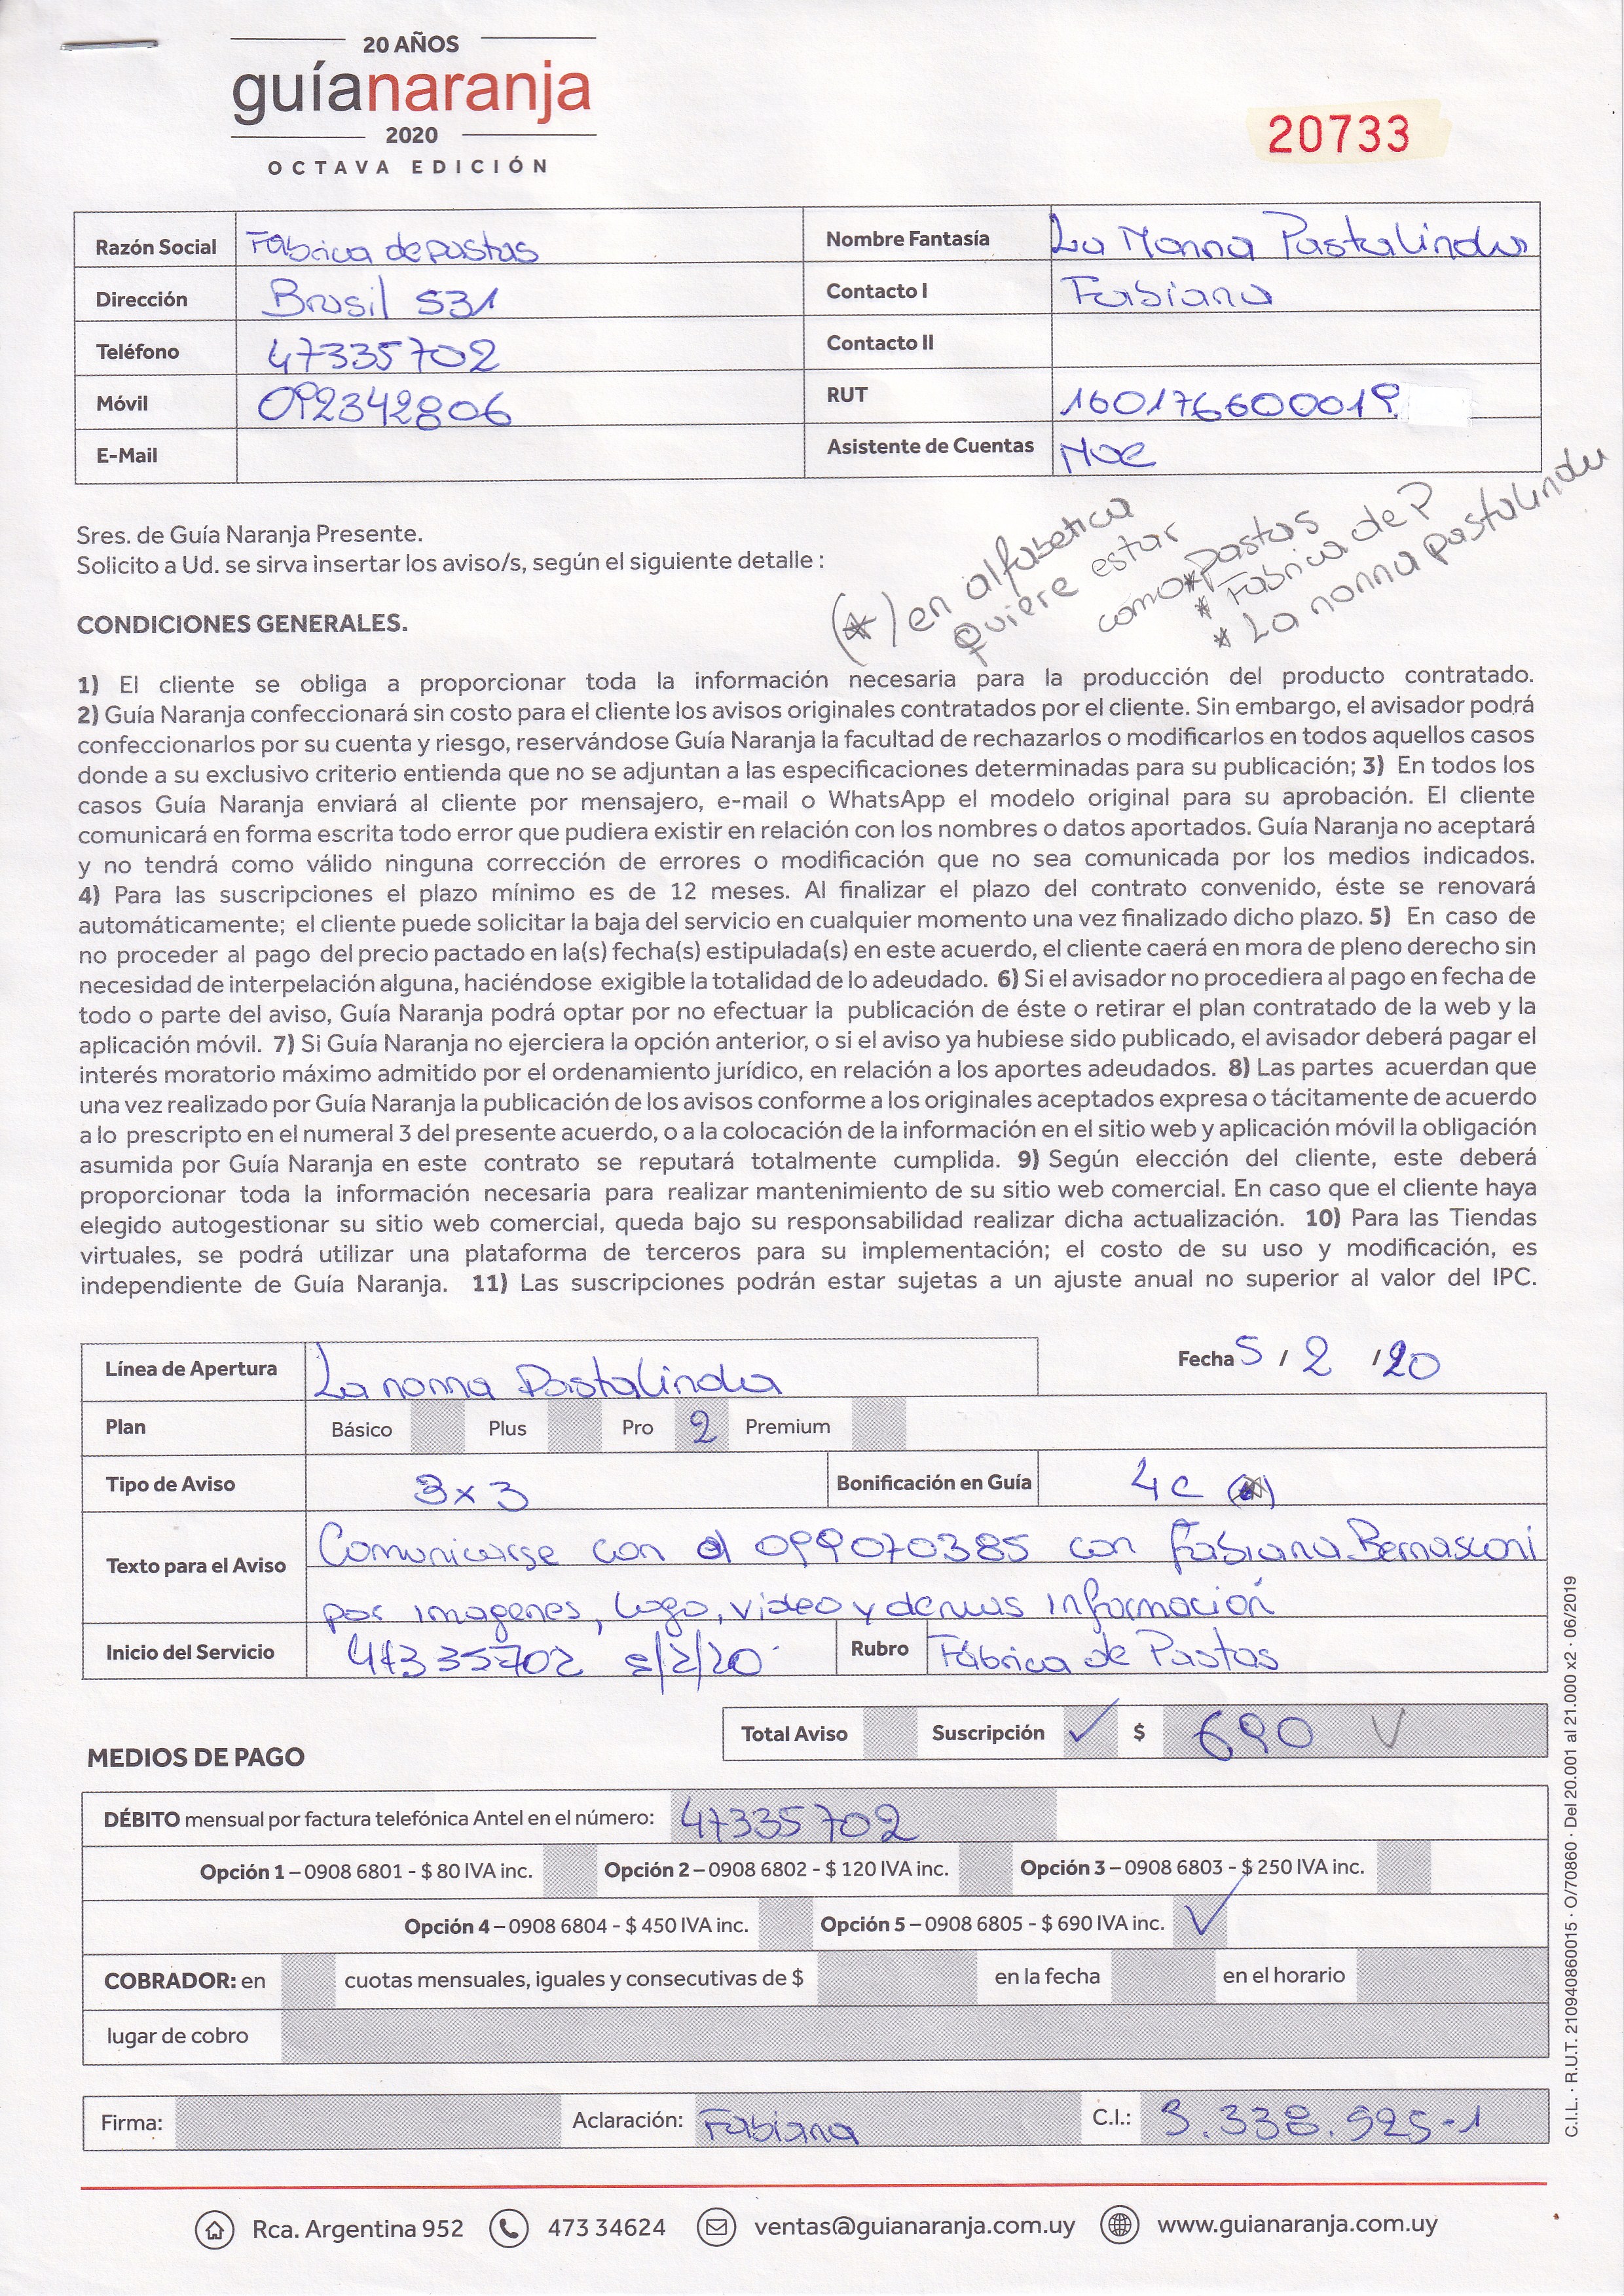 20 AÑOS
guíanaranja
2020
OCTAVA EDICIÓN
20733
Razón Social Fábrica de pastas Nombre Fantasía La Nonna Pastalinda
Dirección Brasil 531 Contacto I Fabiana
Teléfono 47335702 Contacto II
Móvil 092342806 RUT 160176600019
E-Mail Asistente de Cuentas Noe
(*) en alfabetica
quiere estar
como * Pastas
* Fabrica de P
* La nonna pastalinda
Sres. de Guía Naranja Presente.
Solicito a Ud. se sirva insertar los aviso/s, según el siguiente detalle :
CONDICIONES GENERALES.
1) El cliente se obliga a proporcionar toda la información necesaria para la producción del producto contratado.
2) Guía Naranja confeccionará sin costo para el cliente los avisos originales contratados por el cliente. Sin embargo, el avisador podrá
confeccionarlos por su cuenta y riesgo, reservándose Guía Naranja la facultad de rechazarlos o modificarlos en todos aquellos casos
donde a su exclusivo criterio entienda que no se adjuntan a las especificaciones determinadas para su publicación; 3) En todos los
casos Guía Naranja enviará al cliente por mensajero, e-mail o WhatsApp el modelo original para su aprobación. El cliente
comunicará en forma escrita todo error que pudiera existir en relación con los nombres o datos aportados. Guía Naranja no aceptará
y no tendrá como válido ninguna corrección de errores o modificación que no sea comunicada por los medios indicados.
4) Para las suscripciones el plazo mínimo es de 12 meses. Al finalizar el plazo del contrato convenido, éste se renovará
automáticamente; el cliente puede solicitar la baja del servicio en cualquier momento una vez finalizado dicho plazo. 5) En caso de
no proceder al pago del precio pactado en la(s) fecha(s) estipulada(s) en este acuerdo, el cliente caerá en mora de pleno derecho sin
necesidad de interpelación alguna, haciéndose exigible la totalidad de lo adeudado. 6) Si el avisador no procediera al pago en fecha de
todo o parte del aviso, Guía Naranja podrá optar por no efectuar la publicación de éste o retirar el plan contratado de la web y la
aplicación móvil. 7) Si Guía Naranja no ejerciera la opción anterior, o si el aviso ya hubiese sido publicado, el avisador deberá pagar el
interés moratorio máximo admitido por el ordenamiento jurídico, en relación a los aportes adeudados. 8) Las partes acuerdan que
una vez realizado por Guía Naranja la publicación de los avisos conforme a los originales aceptados expresa o tácitamente de acuerdo
a lo prescripto en el numeral 3 del presente acuerdo, o a la colocación de la información en el sitio web y aplicación móvil la obligación
asumida por Guía Naranja en este contrato se reputará totalmente cumplida. 9) Según elección del cliente, este deberá
proporcionar toda la información necesaria para realizar mantenimiento de su sitio web comercial. En caso que el cliente haya
elegido autogestionar su sitio web comercial, queda bajo su responsabilidad realizar dicha actualización. 10) Para las Tiendas
virtuales, se podrá utilizar una plataforma de terceros para su implementación; el costo de su uso y modificación, es
independiente de Guía Naranja. 11) Las suscripciones podrán estar sujetas a un ajuste anual no superior al valor del IPC.
Línea de Apertura La nonna Pastalinda Fecha 5 / 2 / 20
Plan Básico Plus Pro 2 Premium
Tipo de Aviso 3x3 Bonificación en Guía 4c (*)
Texto para el Aviso Comunicarse con el 099070385 con Fabiana Bernasconi
por imagenes, logo, video y demas información
Inicio del Servicio 47335702 5/2/20 Rubro Fábrica de Pastas
Total Aviso Suscripción ✓ $ 690 ✓
MEDIOS DE PAGO
DÉBITO mensual por factura telefónica Antel en el número: 47335702
Opción 1 – 0908 6801 - $ 80 IVA inc. Opción 2 – 0908 6802 - $ 120 IVA inc. Opción 3 – 0908 6803 - $ 250 IVA inc.
Opción 4 – 0908 6804 - $ 450 IVA inc. Opción 5 – 0908 6805 - $ 690 IVA inc. ✓
COBRADOR: en cuotas mensuales, iguales y consecutivas de $ en la fecha en el horario
lugar de cobro
Firma: Aclaración: Fabiana C.I.: 3.338.525-1
C.I.L. · R.U.T. 210940860015 · O/70860 · Del 20.001 al 21.000 x2 · 06/2019
Rca. Argentina 952 473 34624 ventas@guianaranja.com.uy www.guianaranja.com.uy